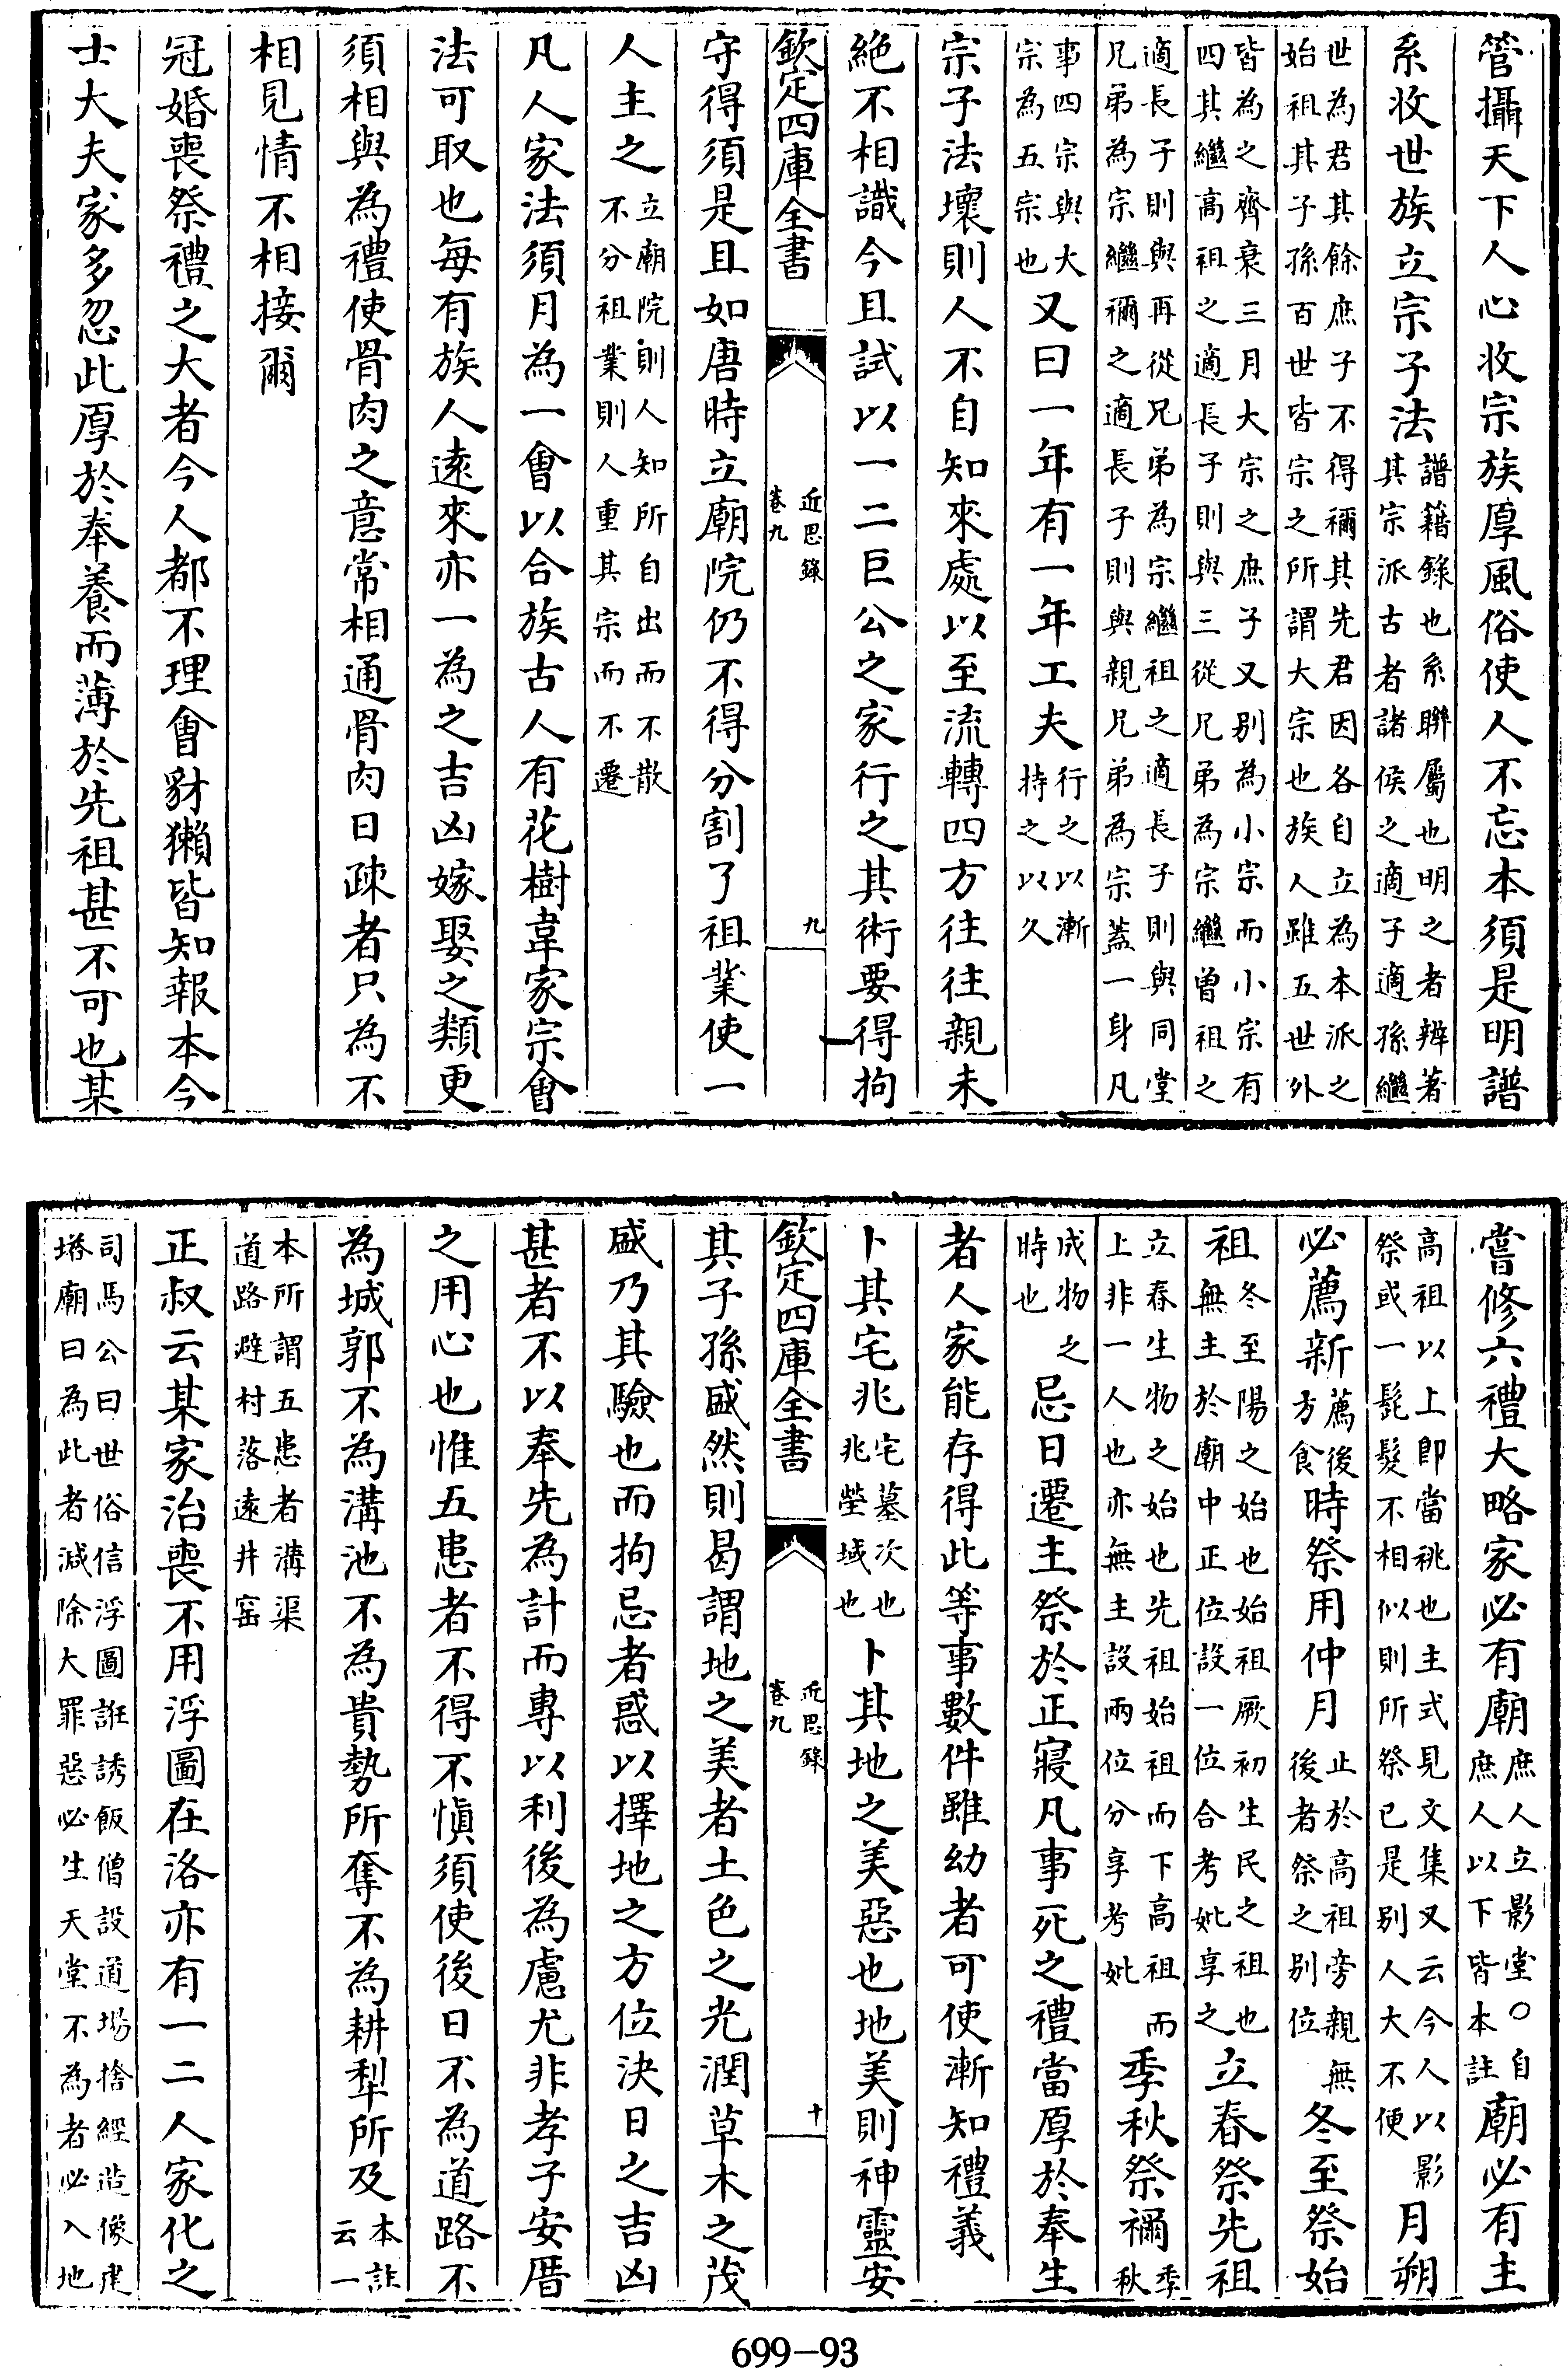 管攝天下人心收宗族厚風俗使人不忘本須是明譜
系收世族立宗子法譜籍錄也系聯屬也明之者辨著其宗派古者諸侯之適子適孫繼
世為君其餘庶子不得禰其先君因各自立為本派之始祖其子孫百世皆宗之所謂大宗也族人雖五世外
皆為之齊衰三月大宗之庶子又别為小宗而小宗有四其繼高祖之適長子則與三從兄弟為宗繼曾祖之
適長子則與再從兄弟為宗繼祖之適長子則與同堂兄弟為宗繼禰之適長子則與親兄弟為宗蓋一身凡
事四宗與大宗為五宗也又曰一年有一年工夫行之以漸持之以久
宗子法壞則人不自知來處以至流轉四方往往親未
絶不相識今且試以一二巨公之家行之其術要得拘
欽定四庫全書 近思錄 卷九 九
守得須是且如唐時立廟院仍不得分割了祖業使一
人主之立廟院則人知所自出而不散不分祖業則人重其宗而不遷
凡人家法須月為一會以合族古人有花樹韋家宗會
法可取也每有族人遠來亦一為之吉凶嫁娶之類更
須相與為禮使骨肉之意常相通骨肉日疎者只為不
相見情不相接爾
冠婚喪祭禮之大者今人都不理會豺獺皆知報本今
士大夫家多忽此厚於奉養而薄於先祖甚不可也某
嘗修六禮大略家必有廟庶人立影堂○自庶人以下皆本註廟必有主
高祖以上即當祧也主式見文集又云今人以影祭或一髭髮不相似則所祭已是别人大不便月朔
必薦新薦後方食時祭用仲月止於高祖旁親無後者祭之别位冬至祭始
祖冬至陽之始也始祖厥初生民之祖也無主於廟中正位設一位合考妣享之立春祭先祖
立春生物之始也先祖始祖而下高祖而上非一人也亦無主設兩位分享考妣季秋祭禰季秋
成物之時也忌日遷主祭於正寢凡事死之禮當厚於奉生
者人家能存得此等事數件雖幼者可使漸知禮義
卜其宅兆宅墓次也兆塋域也卜其地之美惡也地美則神靈安
欽定四庫全書 近思錄 卷九 十
其子孫盛然則曷謂地之美者土色之光潤草木之茂
盛乃其驗也而拘忌者惑以擇地之方位決日之吉凶
甚者不以奉先為計而專以利後為慮尤非孝子安厝
之用心也惟五患者不得不慎須使後日不為道路不
為城郭不為溝池不為貴勢所奪不為耕犁所及本註云一
本所謂五患者溝渠道路避村落遠井窑
正叔云某家治喪不用浮圖在洛亦有一二人家化之
司馬公曰世俗信浮圖誑誘飯僧設道場捨經造像建塔廟曰為此者減除大罪惡必生天堂不為者必入地
699-93